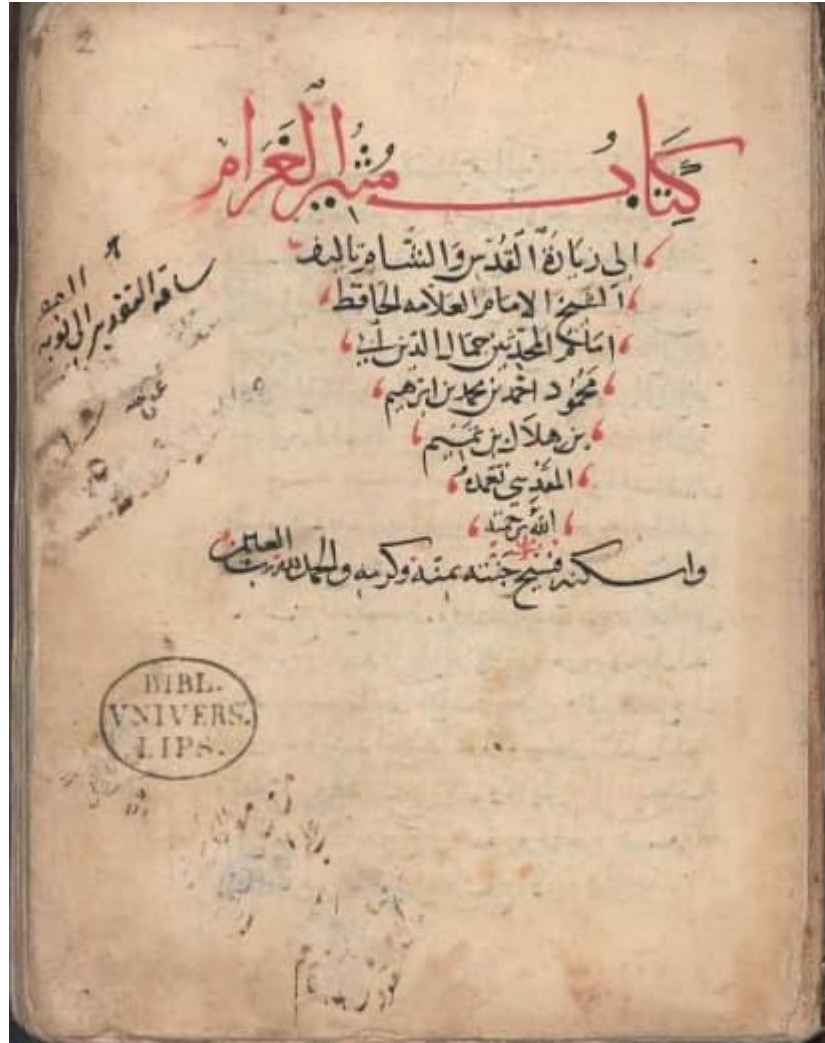 2
كتاب مثير الغرام
الى زيارة القدس والشام تاليف
الشيخ الامام العلامه الحافظ
المحدثين جمال الدين ابي
محمود احمد بن محمد بن ابرهيم
بن هلال بن تميم
المقدسي تغمده
الله برحمته
واسكنه فسيح جنته بمنه وكرمه والحمد لله رب العلمين
ساقه التقدير الى نوبة
BIBL.
VNIVERS.
LIPS.